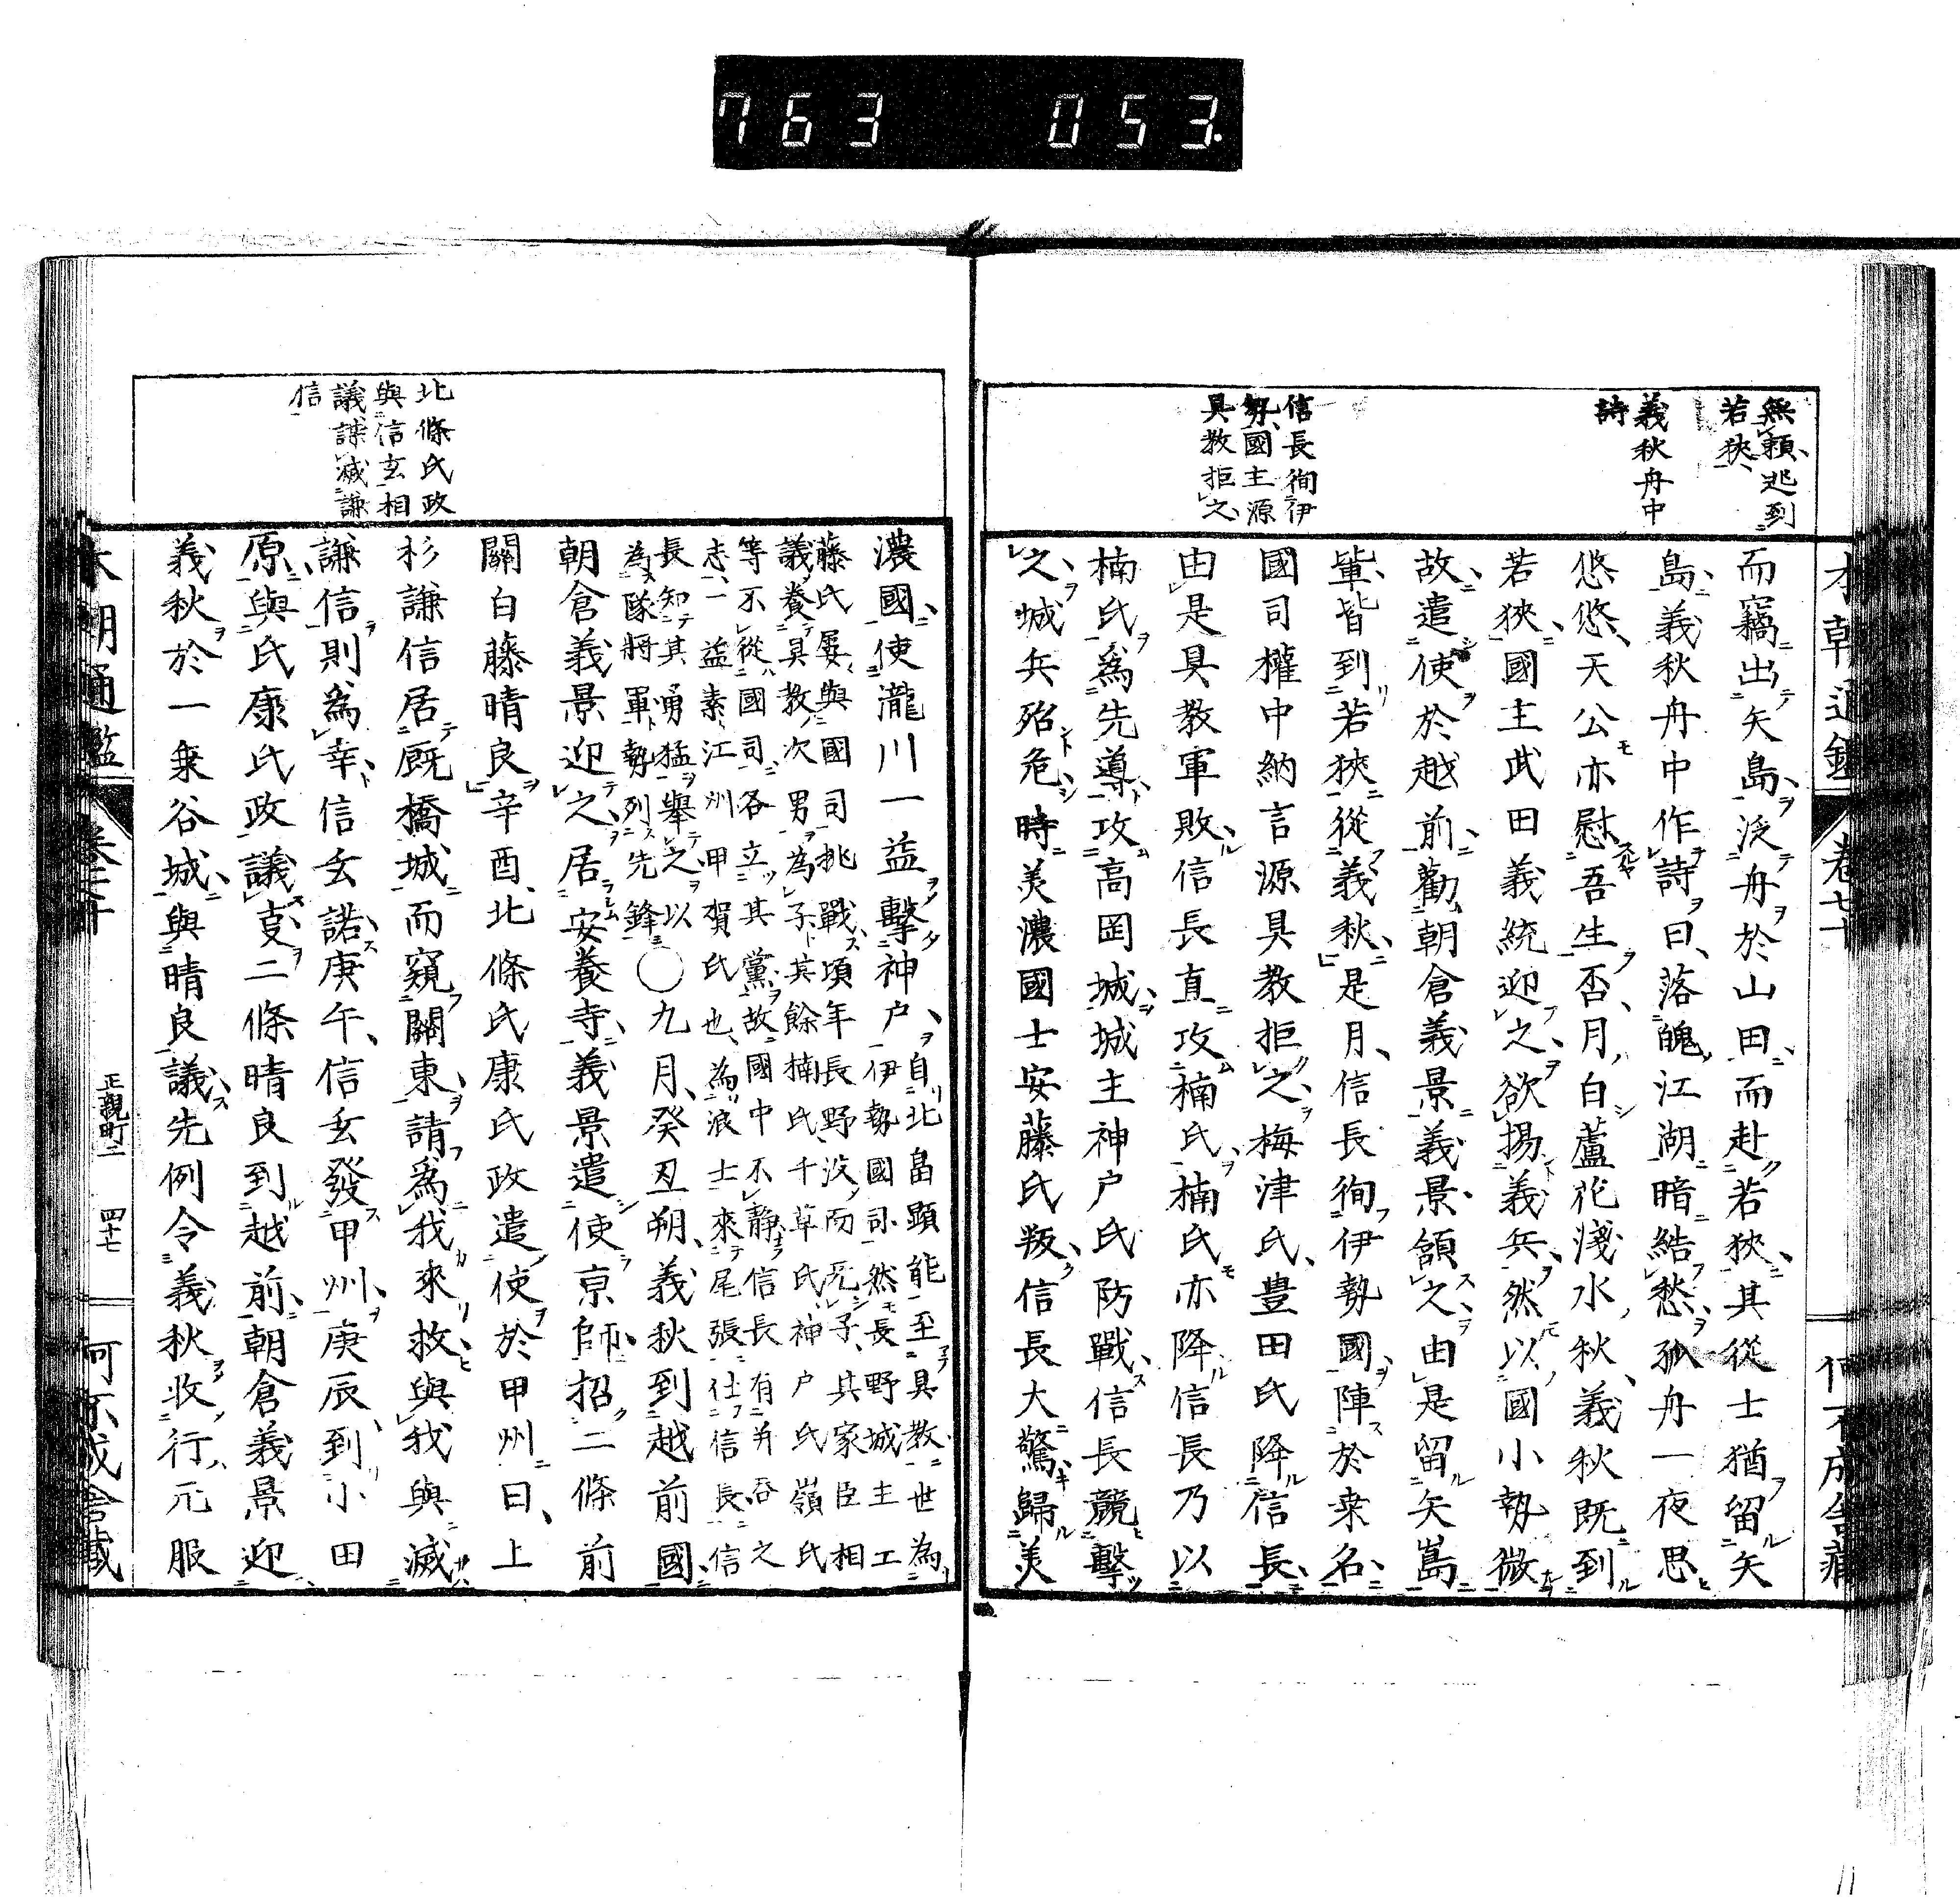 763 053.
無賴逃到
若狹
義秋舟中
詩
信長徇伊
勢國主源
具教拒之
而竊出矢島泛舟於山田而赴若狹其從士猶留矢
島義秋舟中作詩曰落魄江湖暗結愁孤舟一夜思
悠悠天公亦慰吾生否月白蘆花淺水秋義秋既到
若狹國主武田義統迎之欲揚義兵然以國小勢微
故遣使於越前勸朝倉義景義景頷之由是留矢嶌
輩皆到若狹從義秋是月信長徇伊勢國陣於桒名
國司權中納言源具教拒之梅津氏豊田氏降信長
由是具教軍敗信長直攻楠氏楠氏亦降信長乃以
楠氏為先導攻高岡城城主神户氏防戰信長競擊
之城兵殆危時美濃國士安藤氏叛信長大驚歸美
北條氏政
與信玄相
議謀滅謙
信
濃國使瀧川一益擊神户自北畠顯能至具教世為
伊勢國司然長野城主工
藤氏屡與國司挑戰頃年長野没而无子其家臣相
議養具教次男為子其餘楠氏千草氏神户氏嶺氏
等不從國司各立其黨故國中不靜信長有并吞之
志一益素江州甲賀氏也為浪士來尾張仕信長信
長知其勇猛舉之以
為隊將軍勢列先鋒〇九月癸丑朔義秋到越前國
朝倉義景迎之居安養寺義景遣使京師招二條前
關白藤晴良辛酉北條氏康氏政遣使於甲州曰上
杉謙信居厩橋城而窺關東請為我來救與我與滅
謙信則為幸信玄諾庚午信玄發甲州庚辰到小田
原與氏康氏政議支二條晴良到越前朝倉義景迎
義秋於一乗谷城與晴良議先例令義秋收行元服
本朝通鑑
卷七十
正親町二 四十七